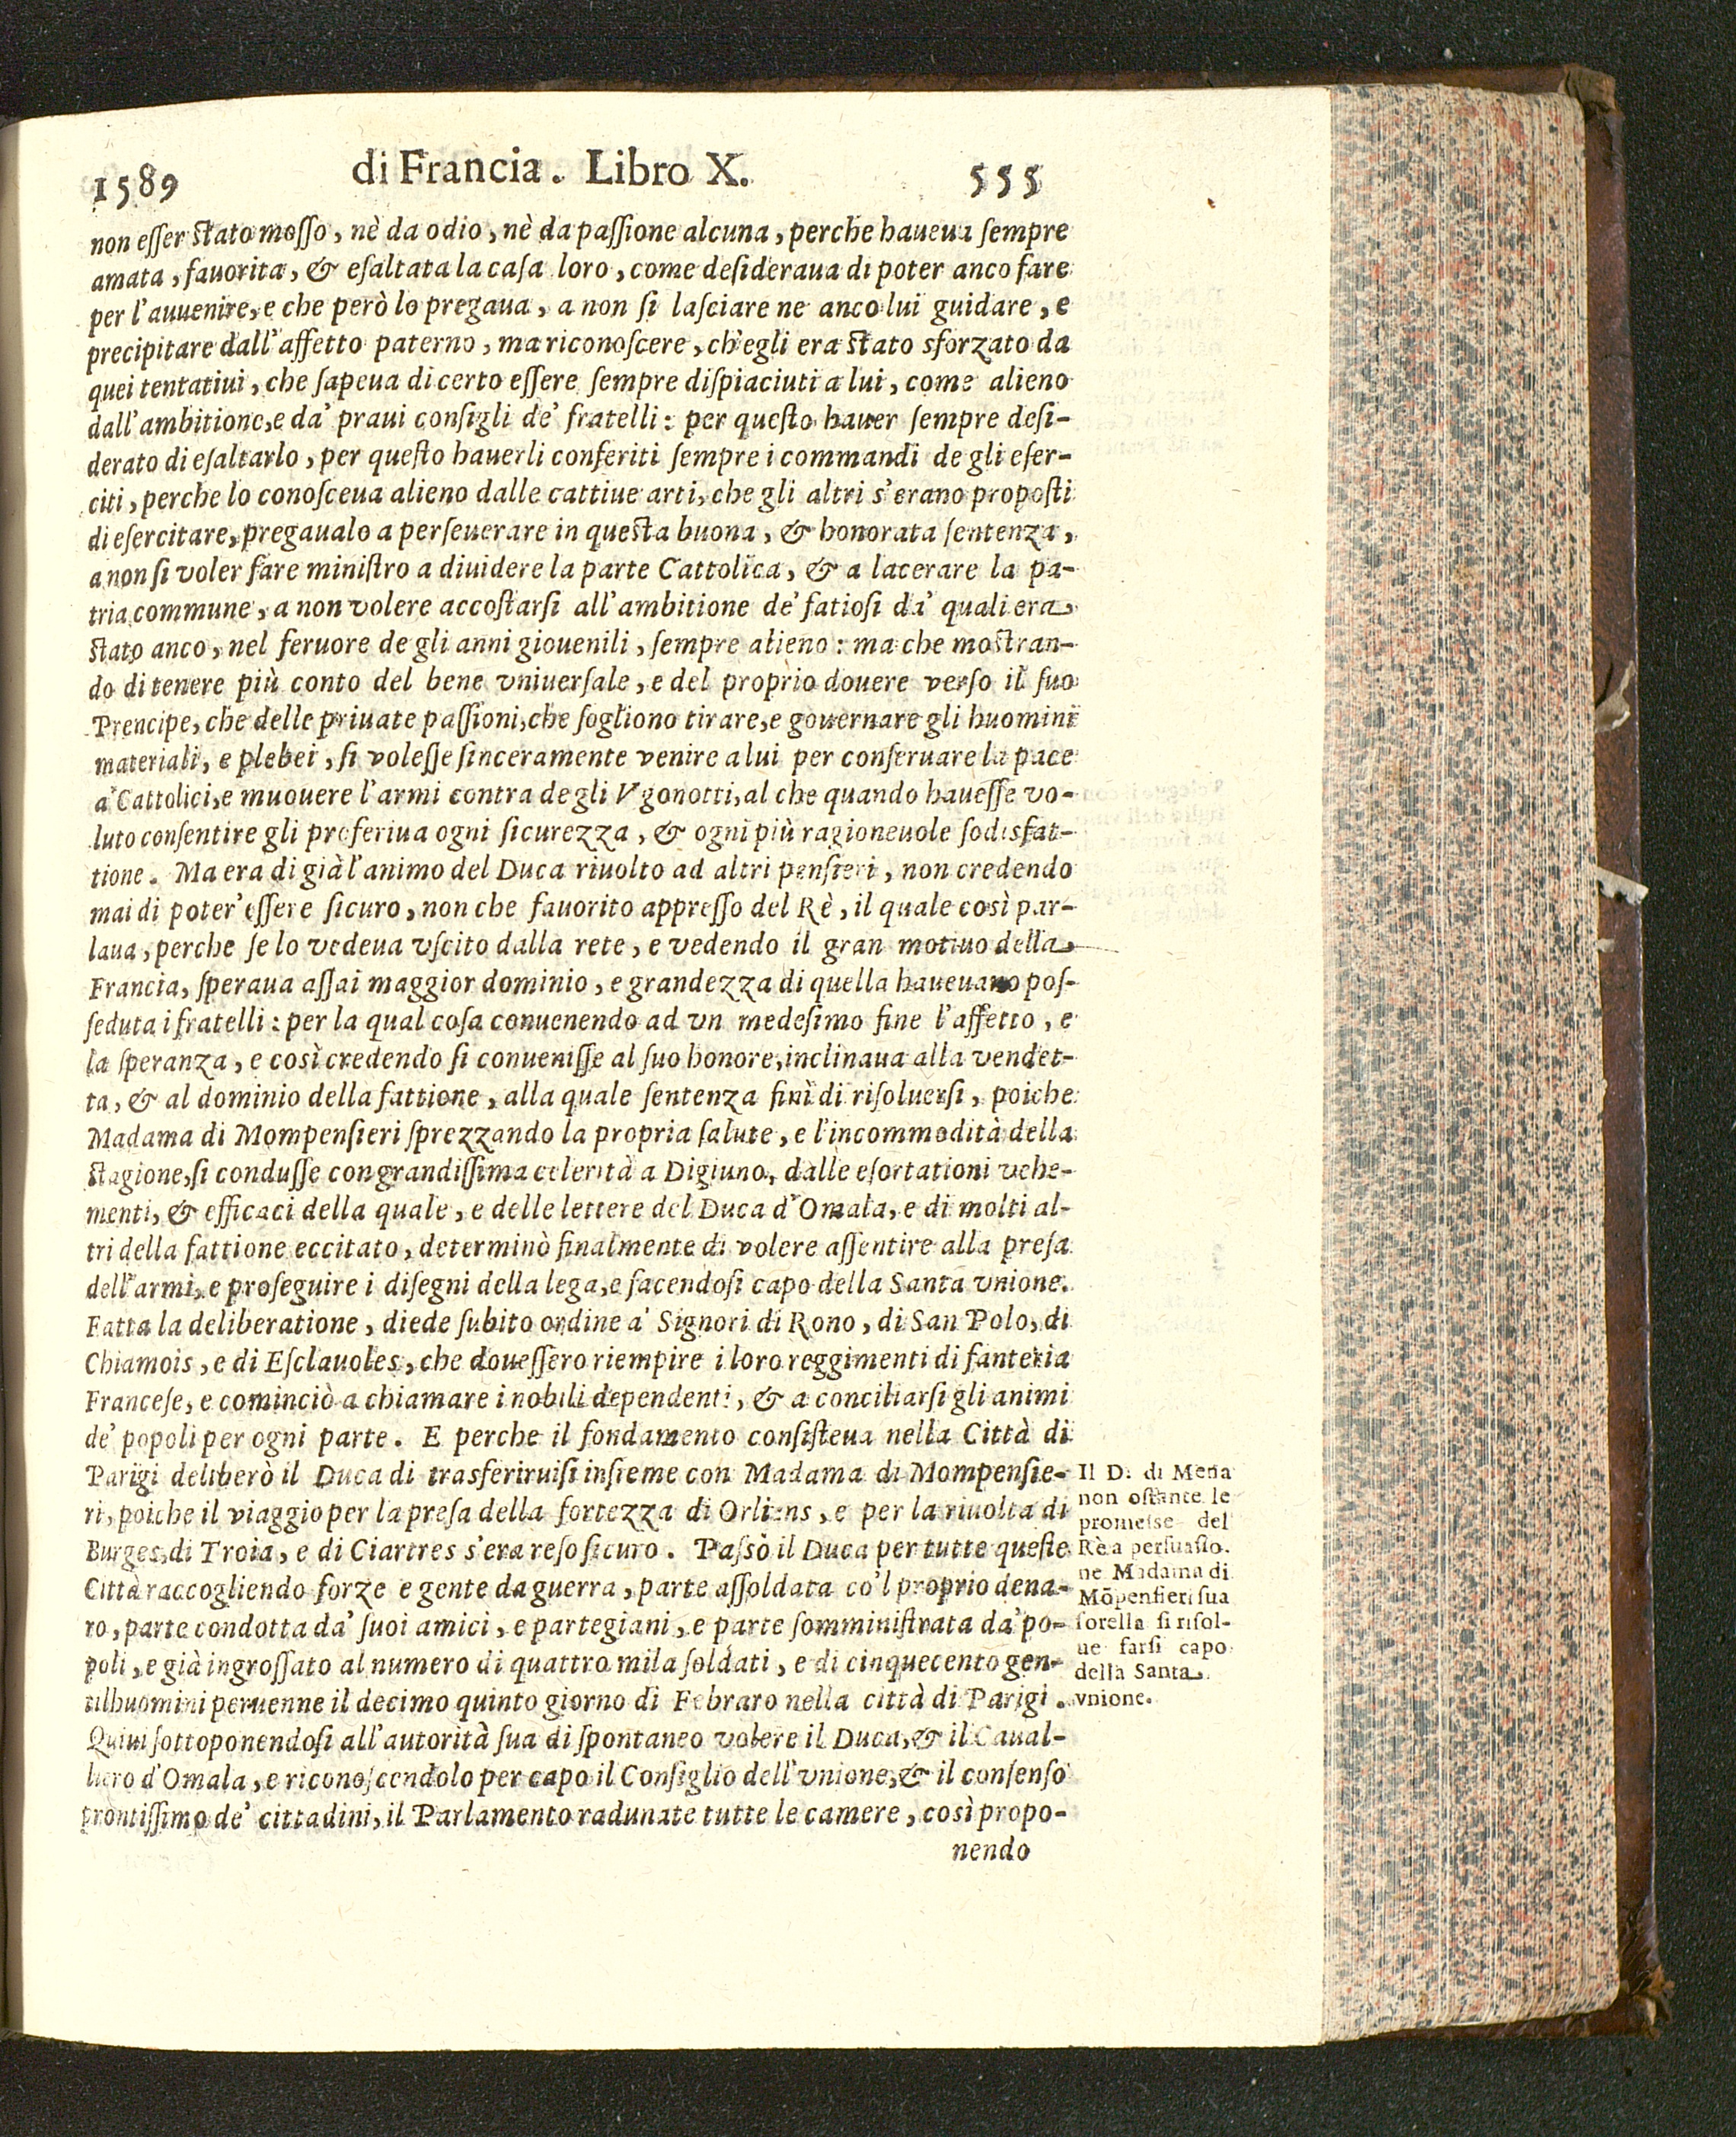 1589 di Francia. Libro X. 555
non eſſer ſtato moſſo, nè da odio, nè da paſſione alcuna, perche haueua ſempre
amata, fauorita, & eſaltata la caſa loro, come deſideraua di poter anco fare
per l'auuenire, e che però lo pregaua, a non ſi laſciare ne anco lui guidare, e
precipitare dall'affetto paterno, ma riconoſcere, ch'egli era ſtato sforzato da
quei tentatiui, che ſapeua di certo eſſere ſempre diſpiaciuti a lui, come alieno
dall'ambitione, e da' praui conſigli de' fratelli: per queſto hauer ſempre deſi-
derato di eſaltarlo, per queſto hauerli conferiti ſempre i commandi de gli eſer-
citi, perche lo conoſceua alieno dalle cattiue arti, che gli altri s'erano propoſti
di eſercitare, pregaualo a perſeuerare in queſta buona, & honorata ſentenza,
a non ſi voler fare miniſtro a diuidere la parte Cattolica, & a lacerare la pa-
tria commune, a non volere accoſtarſi all'ambitione de' fatioſi da' quali era
ſtato anco, nel feruore de gli anni giouenili, ſempre alieno: ma che moſtran-
do di tenere più conto del bene vniuerſale, e del proprio douere verſo il ſuo
Prencipe, che delle priuate paſſioni, che ſogliono tirare, e gouernare gli huomini
materiali, e plebei, ſi voleſſe ſinceramente venire a lui per conſeruare la pace
a' Cattolici, e muouere l'armi contra de gli Vgonotti, al che quando haueſſe vo-
luto conſentire gli proferiua ogni ſicurezza, & ogni più ragioneuole ſodisfat-
tione. Ma era di già l'animo del Duca riuolto ad altri penſieri, non credendo
mai di poter'eſſere ſicuro, non che fauorito appreſſo del Rè, il quale così par-
laua, perche ſe lo vedeua vſcito dalla rete, e vedendo il gran motiuo della
Francia, ſperaua aſſai maggior dominio, e grandezza di quella haueuano poſ-
ſeduta i fratelli: per la qual coſa conuenendo ad vn medeſimo fine l'affetto, e
la ſperanza, e così credendo ſi conueniſſe al ſuo honore, inclinaua alla vendet-
ta, & al dominio della fattione, alla quale ſentenza finì di riſoluerſi, poiche
Madama di Mompenſieri ſprezzando la propria ſalute, e l'incommodità della
ſtagione, ſi conduſſe con grandiſſima celerità a Digiuno, dalle eſortationi vehe-
menti, & efficaci della quale, e delle lettere del Duca d'Omala, e di molti al-
tri della fattione eccitato, determinò finalmente di volere aſſentire alla preſa
dell'armi, e proſeguire i diſegni della lega, e facendoſi capo della Santa vnione.
Fatta la deliberatione, diede ſubito ordine a' Signori di Rono, di San Polo, di
Chiamois, e di Eſclauoles, che doueſſero riempire i loro reggimenti di fanteria
Franceſe, e cominciò a chiamare i nobili dependenti, & a conciliarſi gli animi
de' popoli per ogni parte. E perche il fondamento conſiſteua nella Città di
Parigi deliberò il Duca di trasferiruiſi inſieme con Madama di Mompenſie-
ri, poiche il viaggio per la preſa della fortezza di Orliens, e per la riuolta di
Burges, di Troia, e di Ciartres s'era reſo ſicuro. Paſsò il Duca per tutte queſte
Città raccogliendo forze e gente da guerra, parte aſſoldata co'l proprio dena-
ro, parte condotta da' ſuoi amici, e partegiani, e parte ſomminiſtrata da' po-
poli, e già ingroſſato al numero di quattro mila ſoldati, e di cinquecento gen-
tilhuomini peruenne il decimo quinto giorno di Febraro nella città di Parigi.
Quiui ſottoponendoſi all'autorità ſua di ſpontaneo volere il Duca, & il Caual-
liero d'Omala, e riconoſcendolo per capo il Conſiglio dell'vnione, & il conſenſo
prontiſſimo de' cittadini, il Parlamento radunate tutte le camere, così propo-
nendo
Il D. di Mena
non oſtante le
promeſse del
Rè a perſuaſio-
ne Madama di
Mõpenſieri ſua
ſorella ſi riſol-
ue farſi capo
della Santa
vnione.